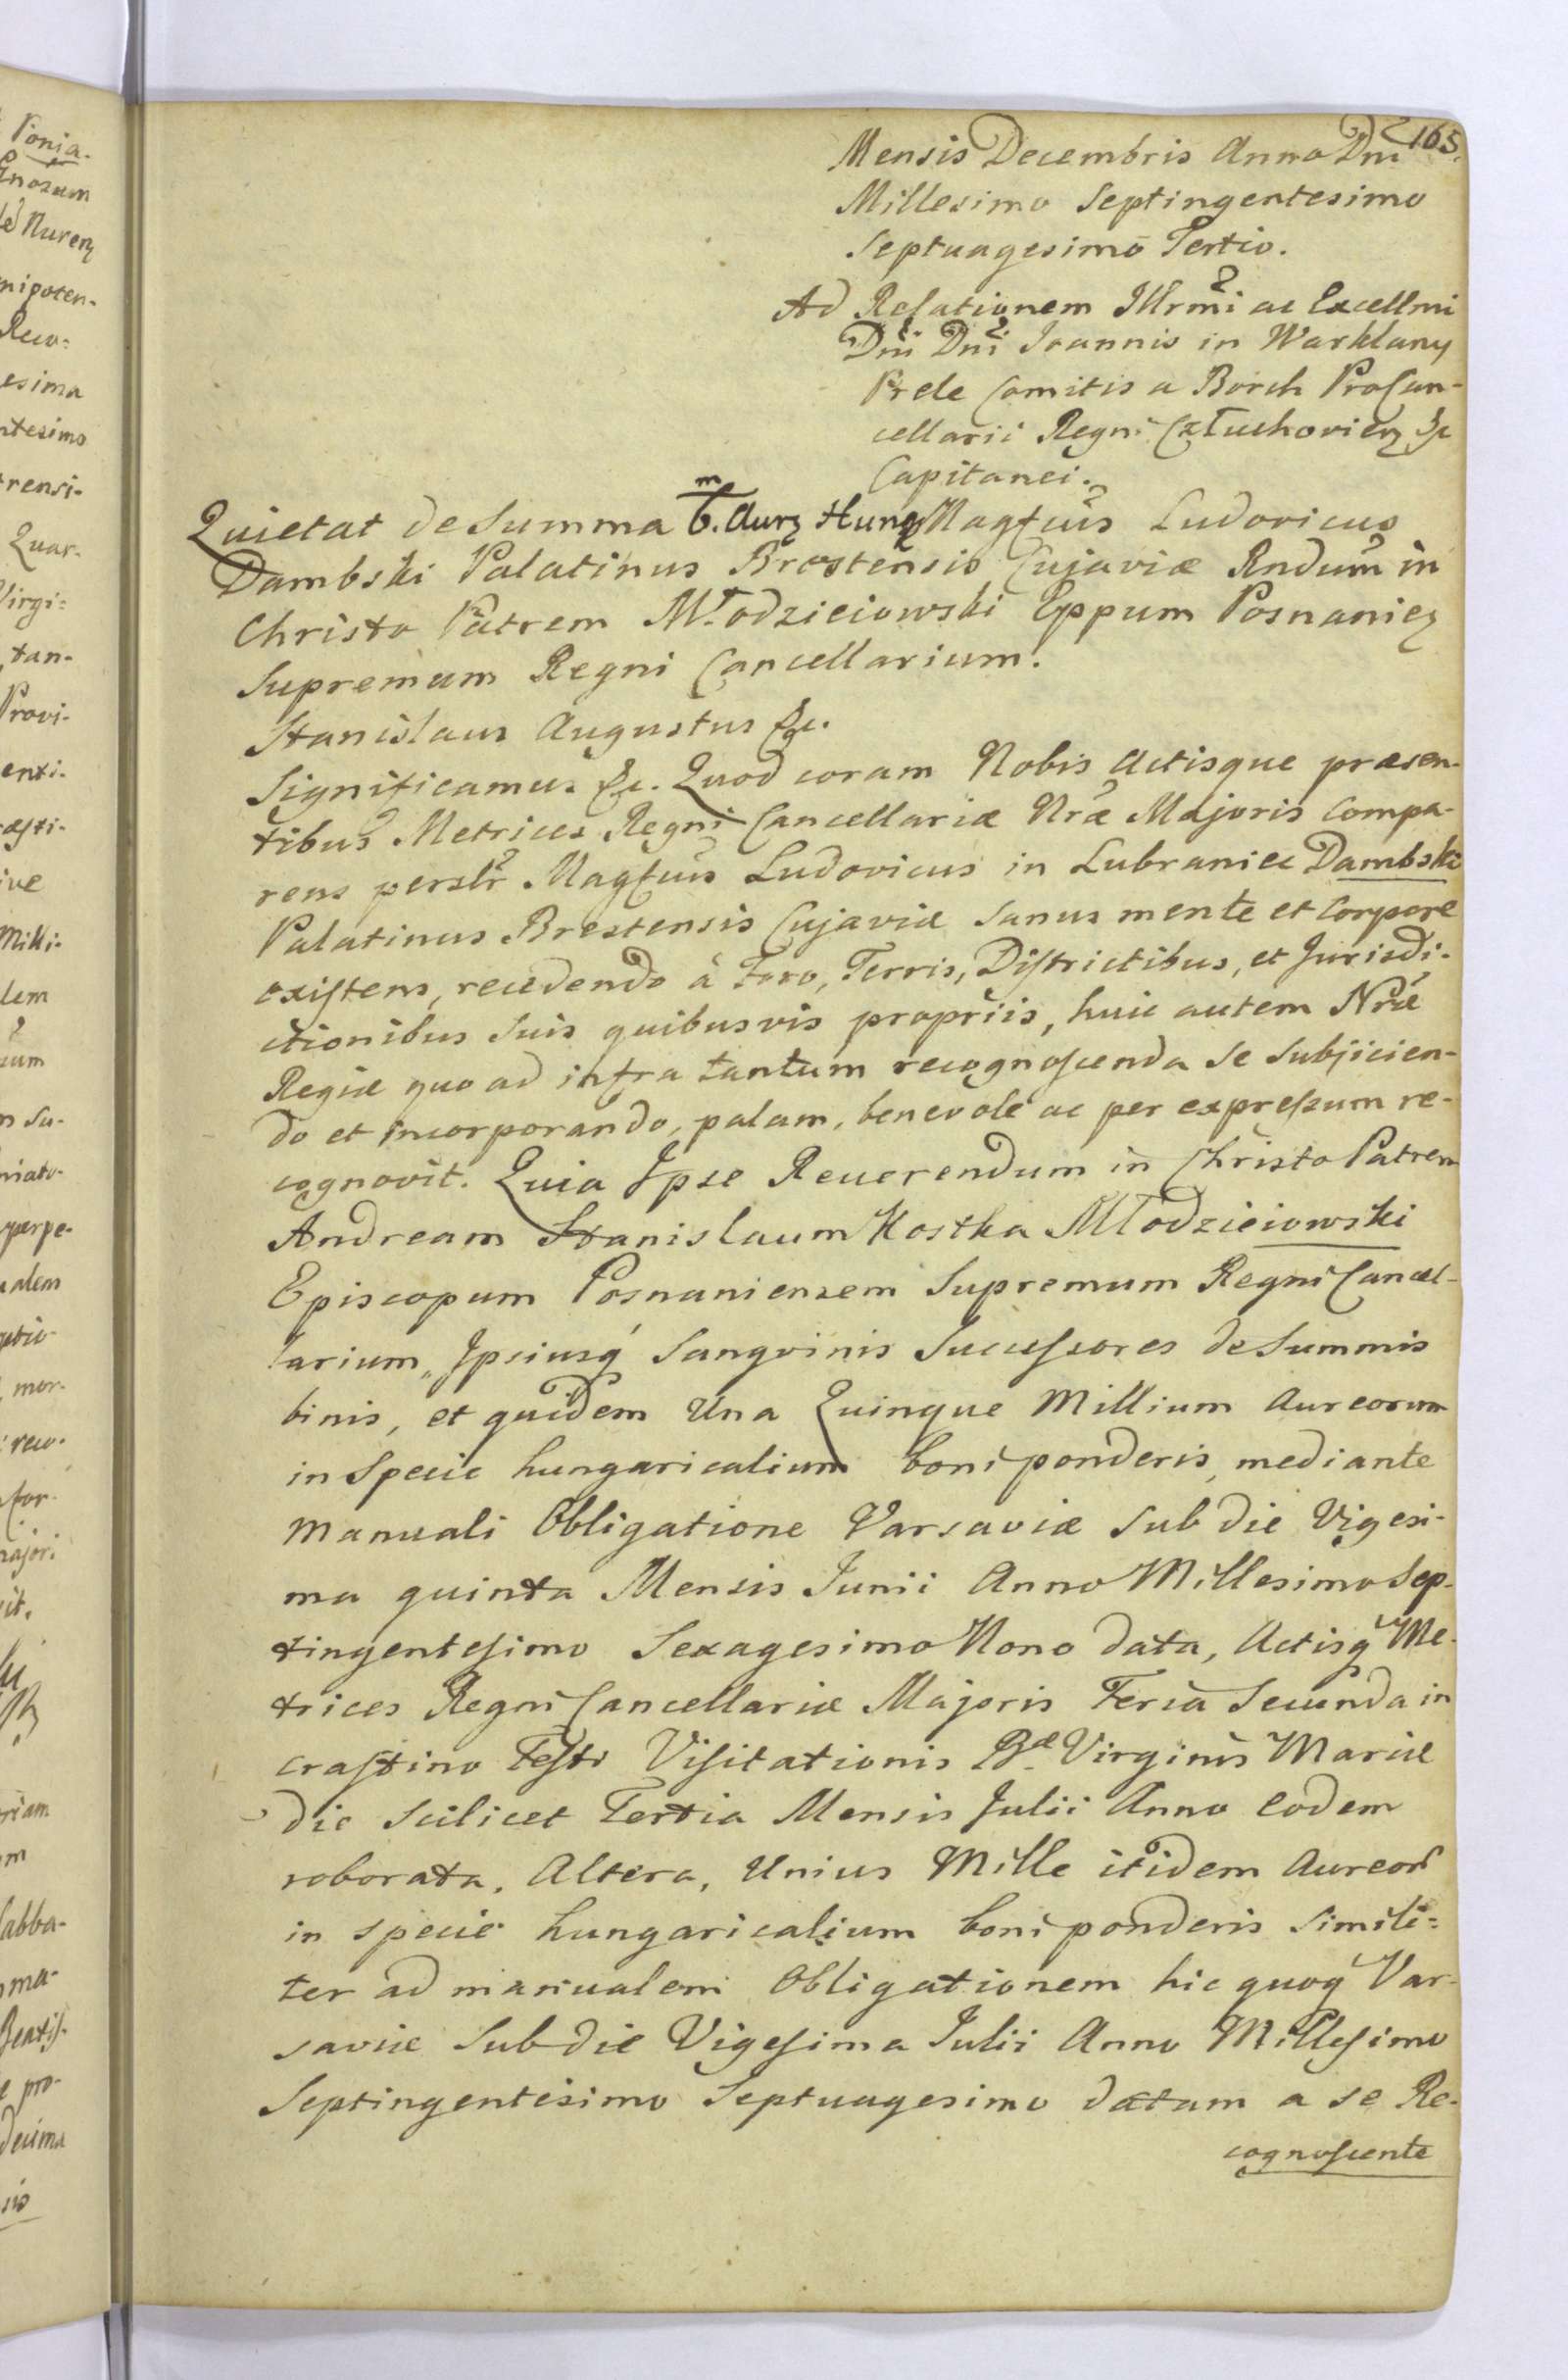 165.
Mensis Decembris Anno Dni
Millesimo Septingentesimo
Septuagesimo Tertio.
Ad Relationem Illrmi ac Excellmi
Dni Dni Joannis in Warklany
Prele Comitis a Borch ProCan-
cellarii Regni Człuchovien &c
Capitanei.
Quietat de Summa 6.m Aur Hung Magfcus Ludovicus
Dambski Palatinus Brestensis Cujaviæ Rndum in
Christo Patrem Młodzieiowski Eppum Posnanien
Supremum Regni Cancellarium.
Stanislaus Augustus &c.
Significamus &c. Quod coram Nobis Actisque præsen-
tibus Metrices Regni Cancellariæ Nræ Majoris Compa-
rens perslr Magfcus Ludovicus in Lubraniec Dambski
Palatinus Brestensis Cujaviæ Sanus mente et Corpore
existens, recedendo à Foro, Terris, Districtibus, et Jurisdi-
ctionibus Suis quibusvis propriis, huic autem Nræ
Regiæ quo ad infra tantum recognoscenda se Subjicien-
do et incorporando, palam, benevole ac per expressum re-
cognovit. Quia Ipse Reuerendum in Christo Patrem
Andream Stanislaum Kostka Młodzieiowski
Episcopum Posnaniensem Supremum Regni Cancel-
larium, Ipsiusq́ Sangvinis Successores de Summis
binis, et quidem Una Quinque Millium Aureorum
in Specie hungaricalium boni ponderis, mediante
Manuali Obligatione Varsaviæ Sub die Vigesi-
ma quinta Mensis Junii Anno Millesimo Sep-
tingentesimo Sexagesimo Nono data, Actisq́ Me-
trices Regni Cancellariæ Majoris Feria Secunda in
crastino Festi Visitationis Bæ Virginis Mariæ
die Scilicet Tertia Mensis Julii Anno Eodem
roborata, Altera, Unius Mille itidem Aureor
in specie hungaricalium boni ponderis Simili=
ter ad manualem Obligationem hic quoq́ Var-
saviæ Sub die Vigesima Julii Anno Millesimo
Septingentesimo Septuagesimo datam a se Re-
cognoscente